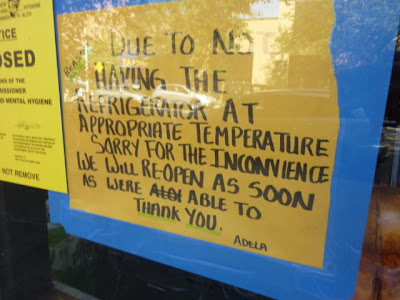 HYGIENE
OSED
MENTAL HYGIENE
NOT REMOVE
DUE TO NOT
HAVING THE
REFRIGERATOR AT
APPROPRIATE TEMPERATURE
SORRY FOR THE INCONVIENCE
WE WILL RE-OPEN AS SOON
AS WERE ABLE TO
THANK YOU.
ADELA